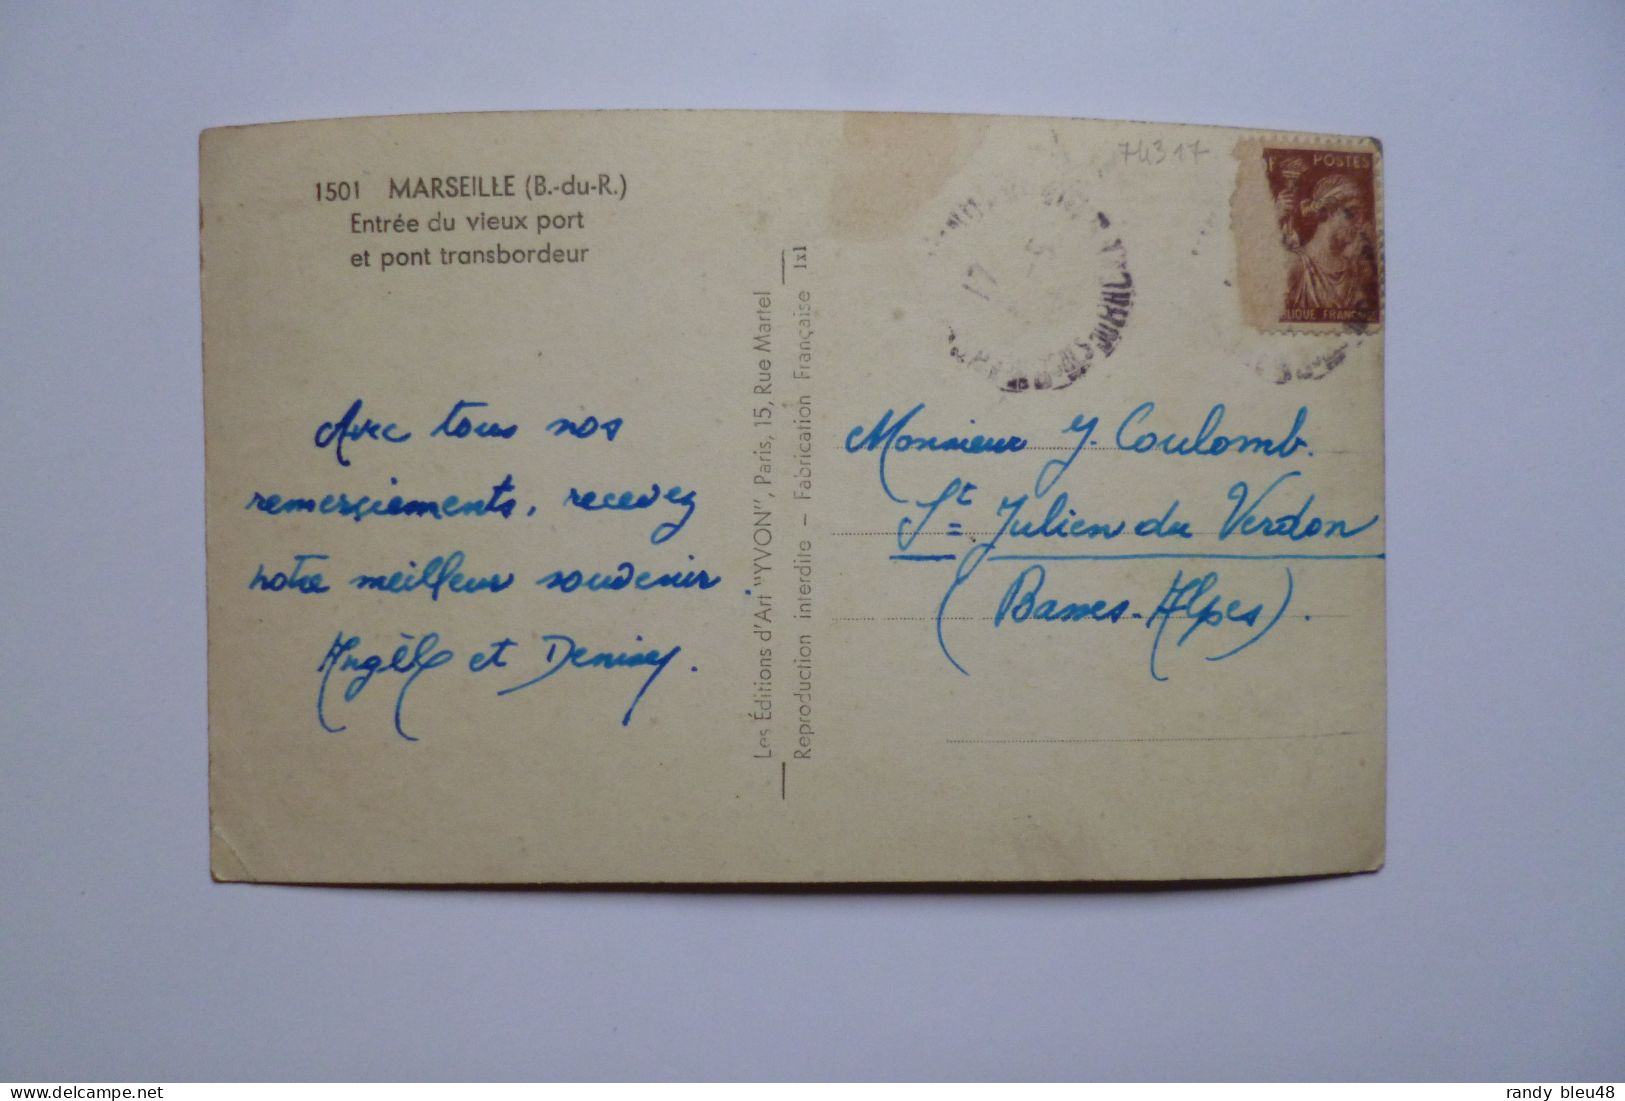 1501 MARSEILLE (B.-du-R.)
Entrée du vieux port
et pont transbordeur
Avec tous nos
remerçiements, recevez
notre meilleur souvenir
Angèle et Denise.
Les Éditions d'Art "YVON", Paris, 15, Rue Martel
Reproduction interdite – Fabrication Française 1x1
74317
F POSTES
BLIQUE FRANÇAISE
17 -5
BCHES DU RHÔNE
Monsieur J. Coulomb.
St Julien du Verdon
(Basses-Alpes).
delcampe.net
randy_bleu48